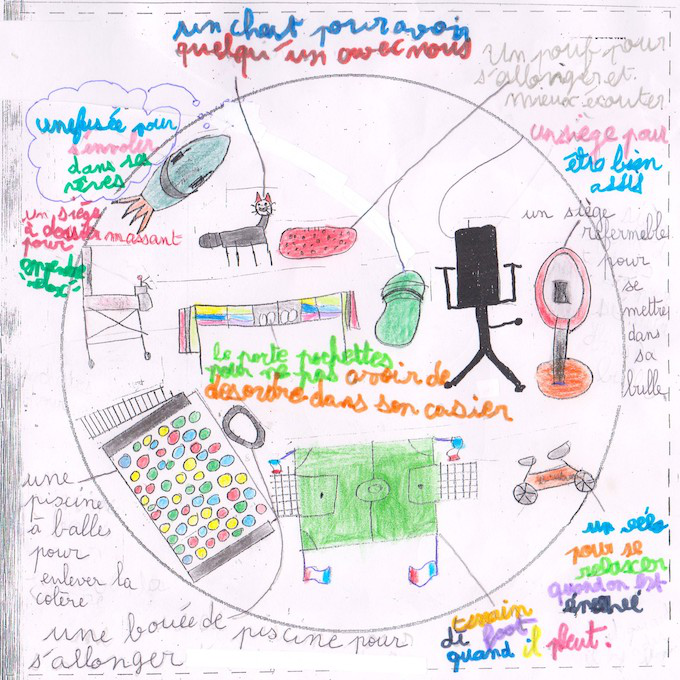 un chat pour avoir
quelqu'un avec nous
un pouf pour
s'allonger et
mieux écouter
une fusée pour
s'envoler
dans ses
rêves
un siège pour
être bien
assis
un siège
à dossier massant
pour
"relax"
un siège
refermable
pour
se
mettre
dans
sa
bulle
le porte pochettes
pour ne pas avoir de
desordre dans son casier
une
piscine
à balles
pour
enlever la
colère
un vélo
pour se
relaxer
quand on est
énervé
terrain
de foot
quand il pleut.
une bouée de piscine pour
s'allonger